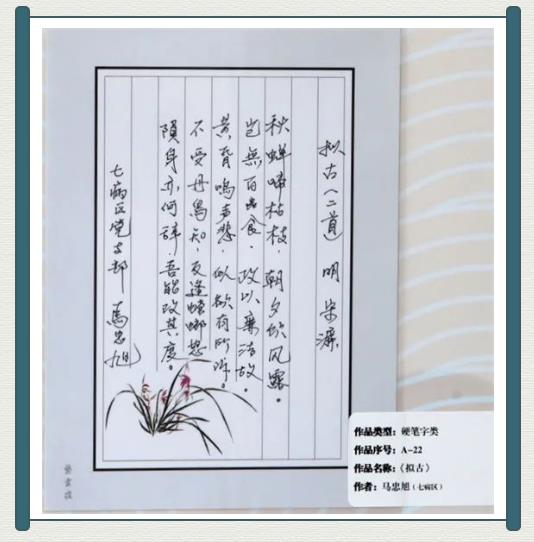 拟古（二首） 明 宋濂
秋蝉啼枯枝，朝夕饮风露。
岂無百虫食，政以廉洁故。
黄脊鳴声悲，似欲有所诉。
不受丹鳥知，反逢螳螂怒
隕身亦何辞，吾能改其度。
七病区党支部 馬忠旭
作品类型：硬笔字类
作品序号：A-22
作品名称：《拟古》
作者：马忠旭（七病区）